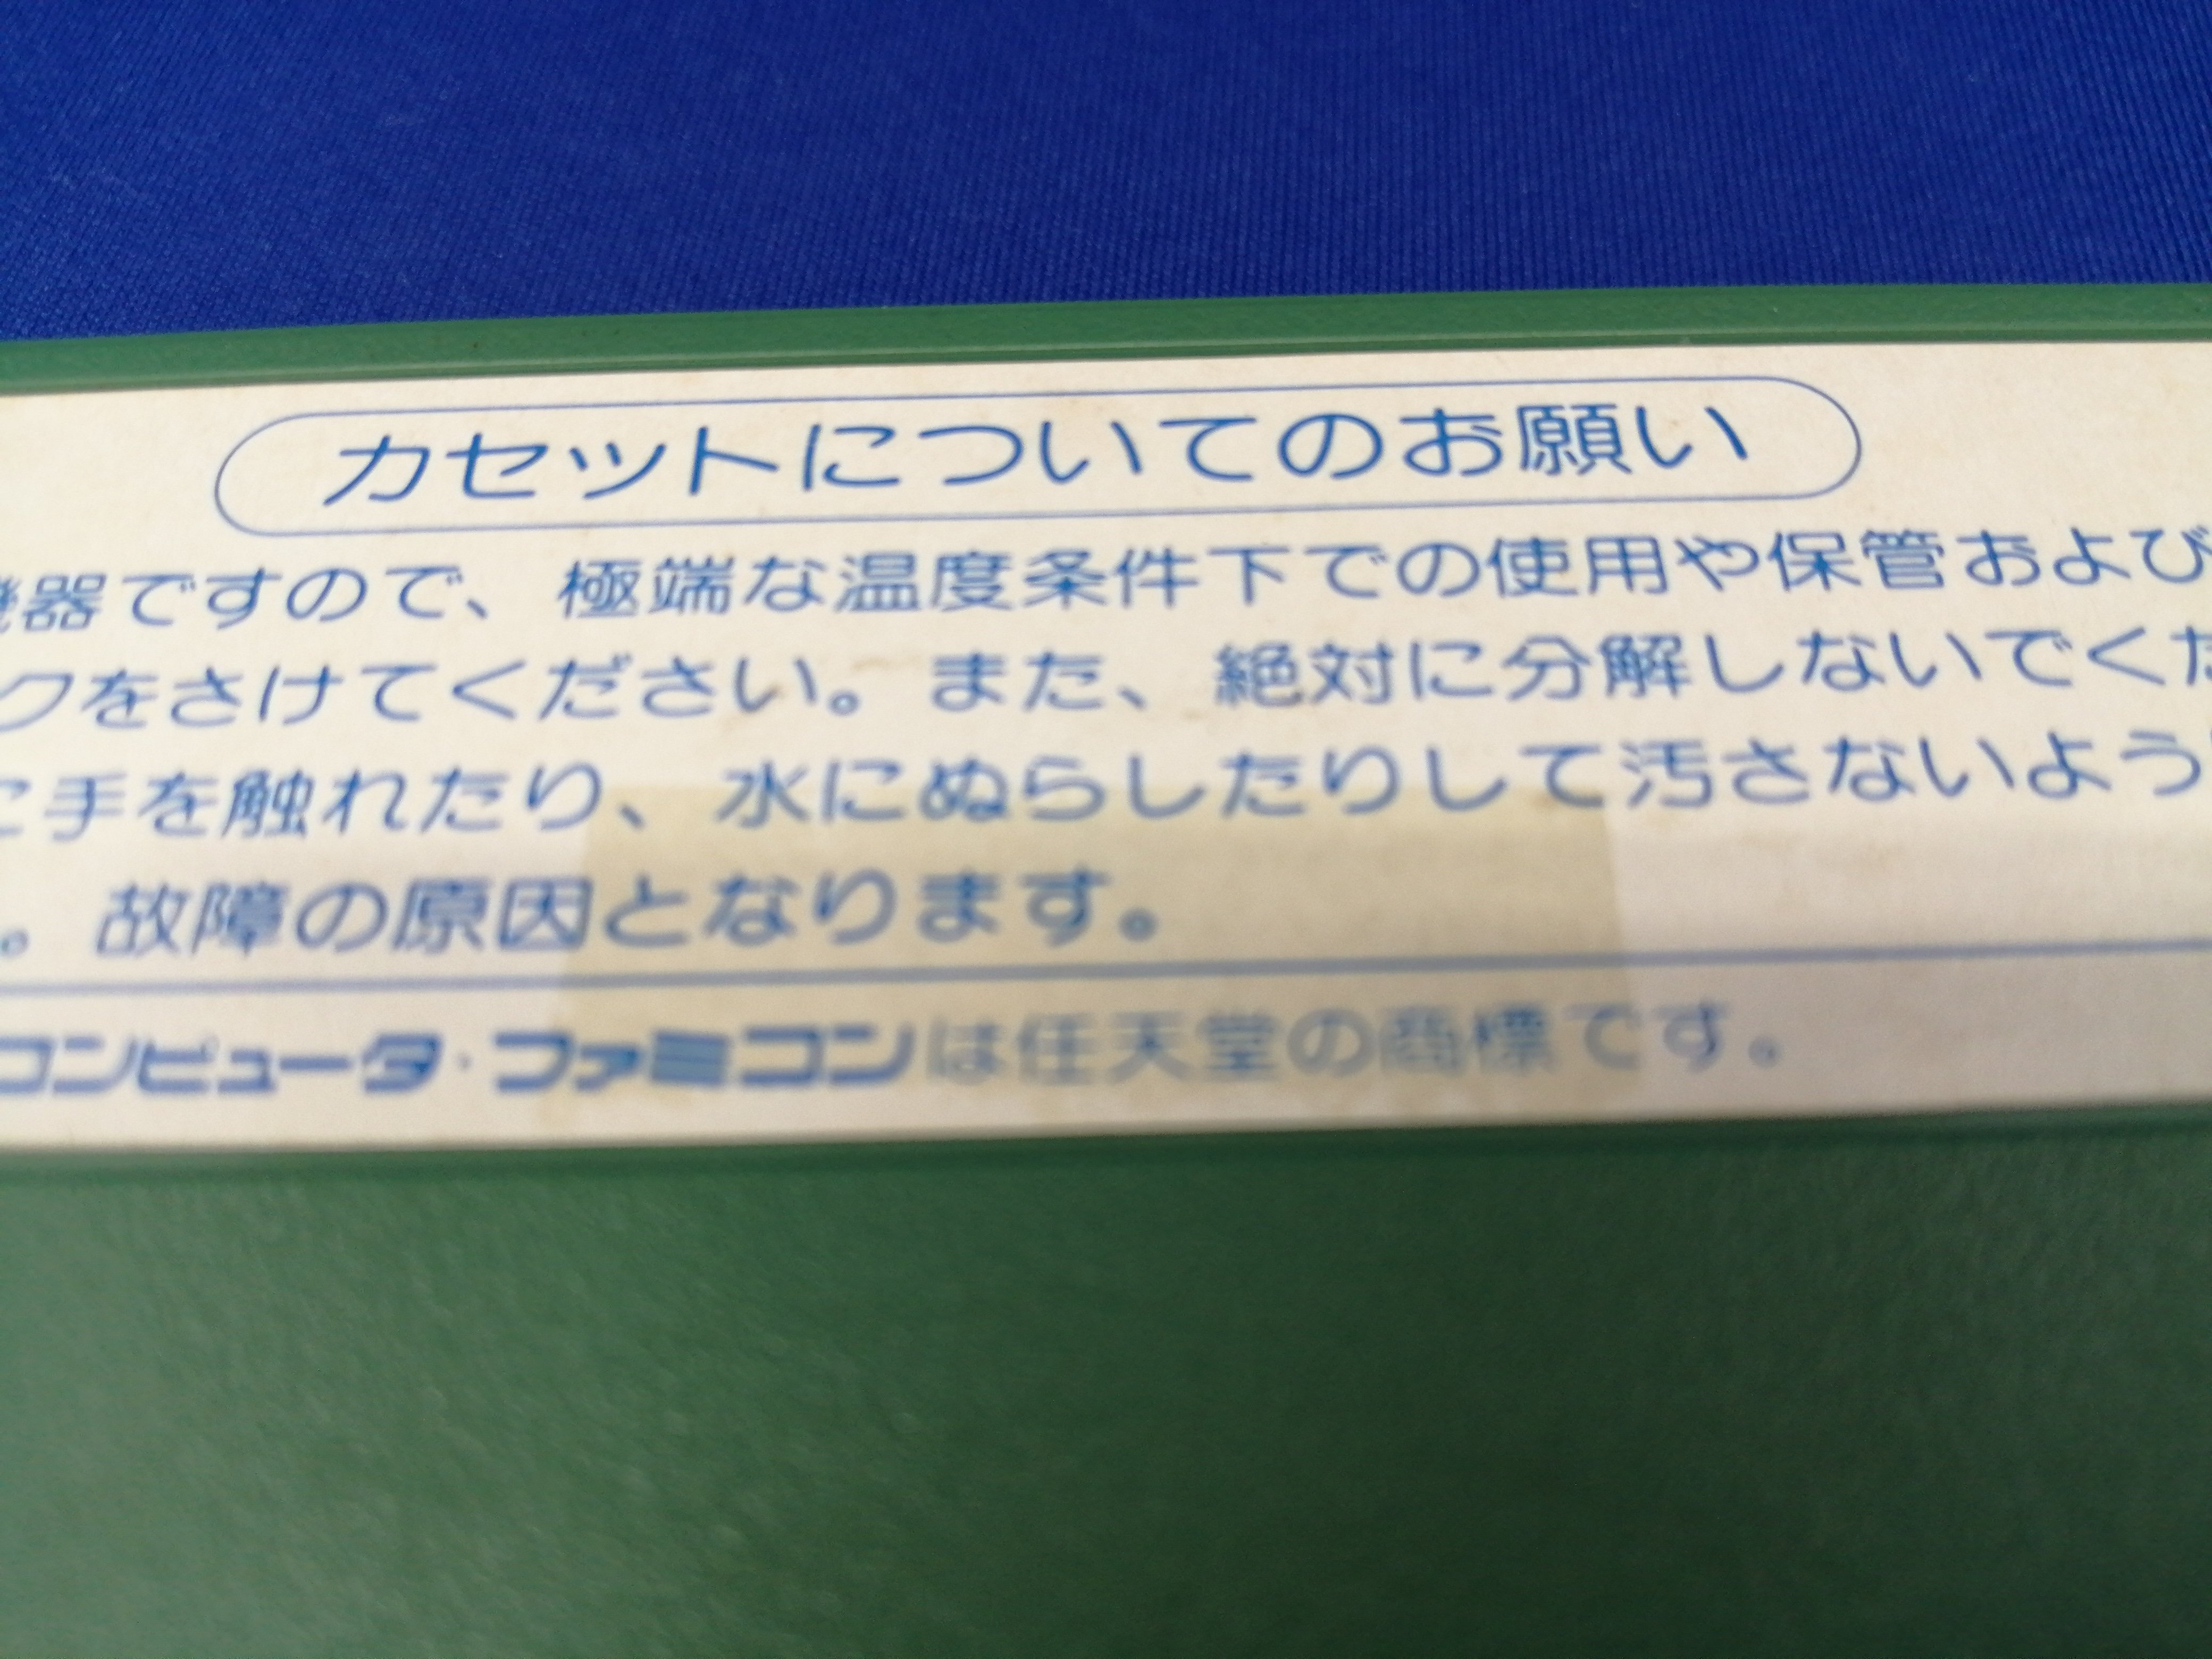 カセットについてのお願い
機器ですので、極端な温度条件下での使用や保管および
クをさけてください。また、絶対に分解しないでくだ
に手を触れたり、水にぬらしたりして汚さないよう
。故障の原因となります。
コンピュータ・ファミコンは任天堂の商標です。